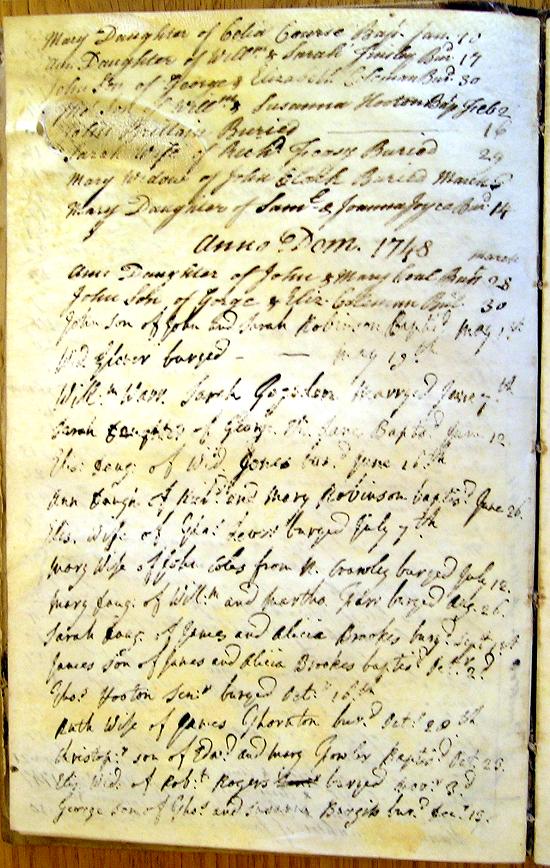 Mary Daughter of Celia Course Bap. Jan. 10
Ann Daughter of Willm & Sarah Tinsley Bur. 17
John Son of George & Elizabeth Coleman Bur. 30
Son of Willm & Susanna Horton Bap Feb 2
John Buried 16
Sarah Wife of Richd Buried 29
Mary Widow of John Buried March
Mary Daughter of Saml & Joanna Joyce Bur. 14
Anno Dom. 1748
March
Ann Daughter of John & Mary Bur. 28
John Son of Gorge & Eliz. Coleman 30
John son of John and Sarah Robinson Baptd May 1st
Wd Glover burged - — May 19th
Willm Sarah Marryed June
Sarah Daughter of George Baptd June 12
Eliz. Daug. of Wid. Jones bur.d June 16th
Ann Daugh. of and Mary Robinson baptsd June 26
Elis. Wife of burged July 7th
Mary Wife of John Coles from N. Crawley burged July 12
Mary Daug. of Will.m and Martha burged Aug. 26.
Sarah Daug. of James and Alicia Brookes burgd Sept.
James son of James and Alicia Brookes baptisd Oct. 2d
Thos Horton Senr burged Oct. 16th
Ruth Wife of James Thornton burd Oct. 20th
Christophr son of Edd and Mary Fowler Baptsd Oct. 23.
Eliz. Wid. of Robt Rogers burged Novr 3d
George Son of Thos and Susanna bur.d Decr 19.